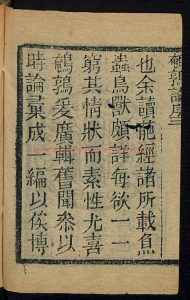 鵪鶉譜序三
也余讀諸經諸所載魚
蟲鳥獸頗詳每欲一一
窮其情狀而素性尤喜
鵪鶉爰廣輯舊聞參以
時論彙成一編以俟博